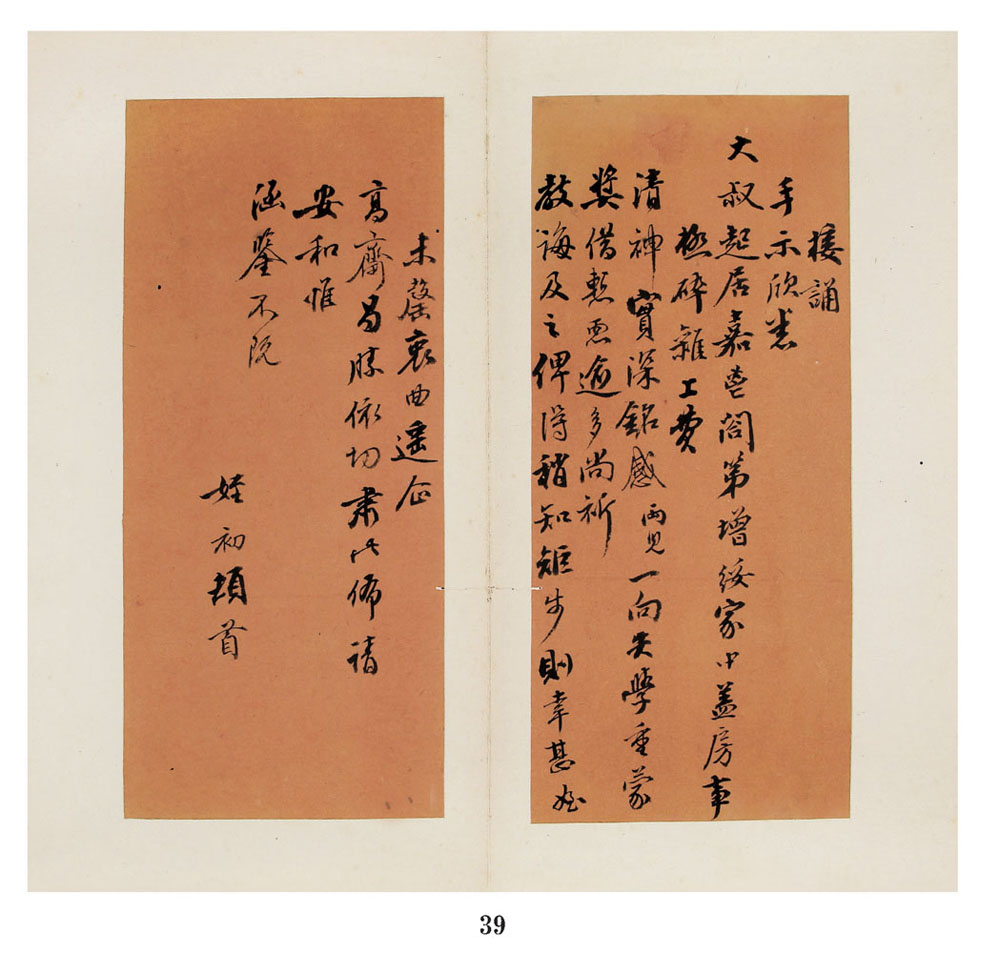 接誦
手示欣悉
大叔起居嘉邕閤第增綏家中蓋房事
極碎雜工費
清神實深銘感兩兒一向失學重蒙
獎借慙恧逾多尚祈
教誨及之俾得稍知矩步則幸甚
未罄衷曲遥企
高齋曷勝依切肅此佈請
安和惟
涵鑒不既
姪初頓首
39